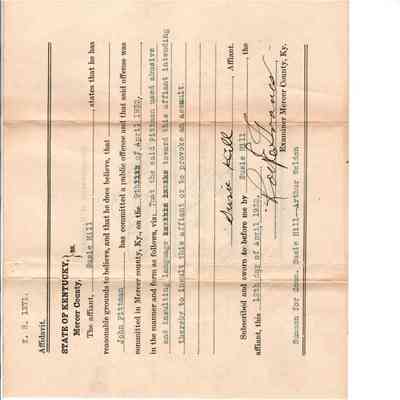 K. S. 1371.
Affidavit.
STATE OF KENTUCKY, } ss.
Mercer County,
The affiant, Susie Hill, states that he has
reasonable grounds to believe, and that he does believe, that
John Pittman has committed a public offense and that said offense was
committed in Mercer county, Ky., on the of April 1930,
in the manner and form as follows, viz: That the said Pittman used abusive
and insulting language toward this affiant intending
thereby to insult this affiant or to provoke an assault.
Susie Hill, Affiant.
Subscribed and sworn to before me by Susie Hill, the
affiant, this 12th day of April 1930,
Examiner Mercer County, Ky.
Summon for Com. Susie Hill--Arthur Weldon